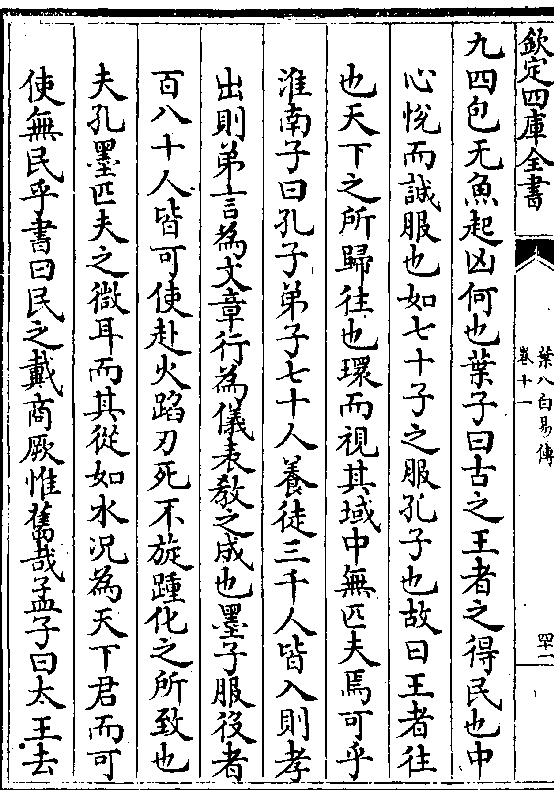 欽定四庫全書
葉八白易傳
卷十一
四十一
九四包无魚起凶何也葉子曰古之王者之得民也中
心悅而誠服也如七十子之服孔子也故曰王者往
也天下之所歸往也環而視其域中無匹夫焉可乎
淮南子曰孔子弟子七十人養徒三千人皆入則孝
出則弟言為文章行為儀表教之成也墨子服役者
百八十人皆可使赴火蹈刃死不旋踵化之所致也
夫孔墨匹夫之微耳而其從如水況為天下君而可
使無民乎書曰民之戴商厥惟舊哉孟子曰太王去